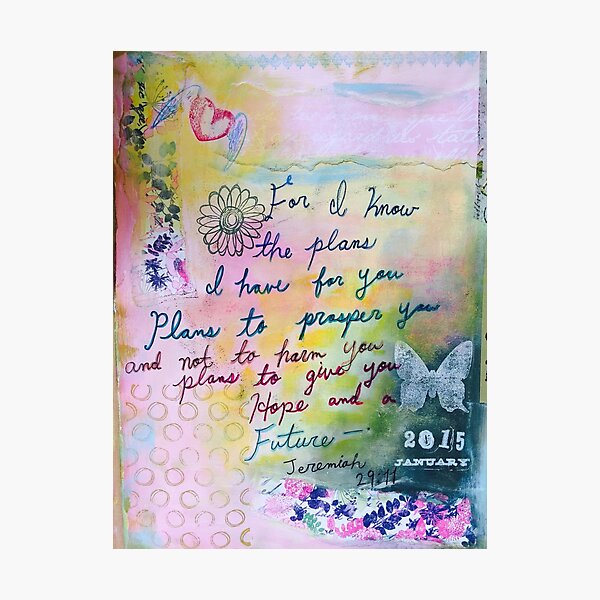 For I know
the plans
I have for you
Plans to prosper you
and not to harm you
plans to give you
Hope and a
Future —
Jeremiah
29:11
2015
JANUARY